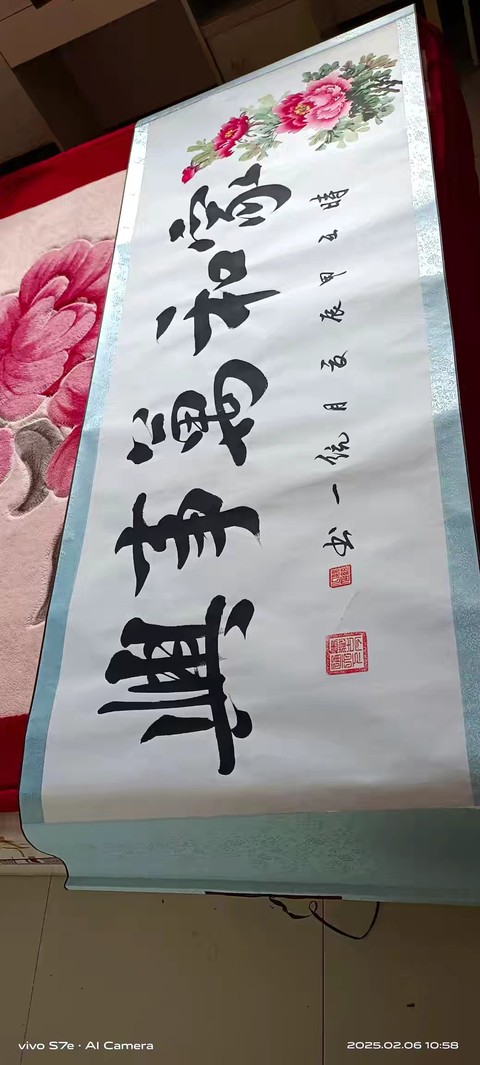 家和萬事興
時甲辰夏月统一书
vivo S7e · AI Camera
2025.02.06 10:58